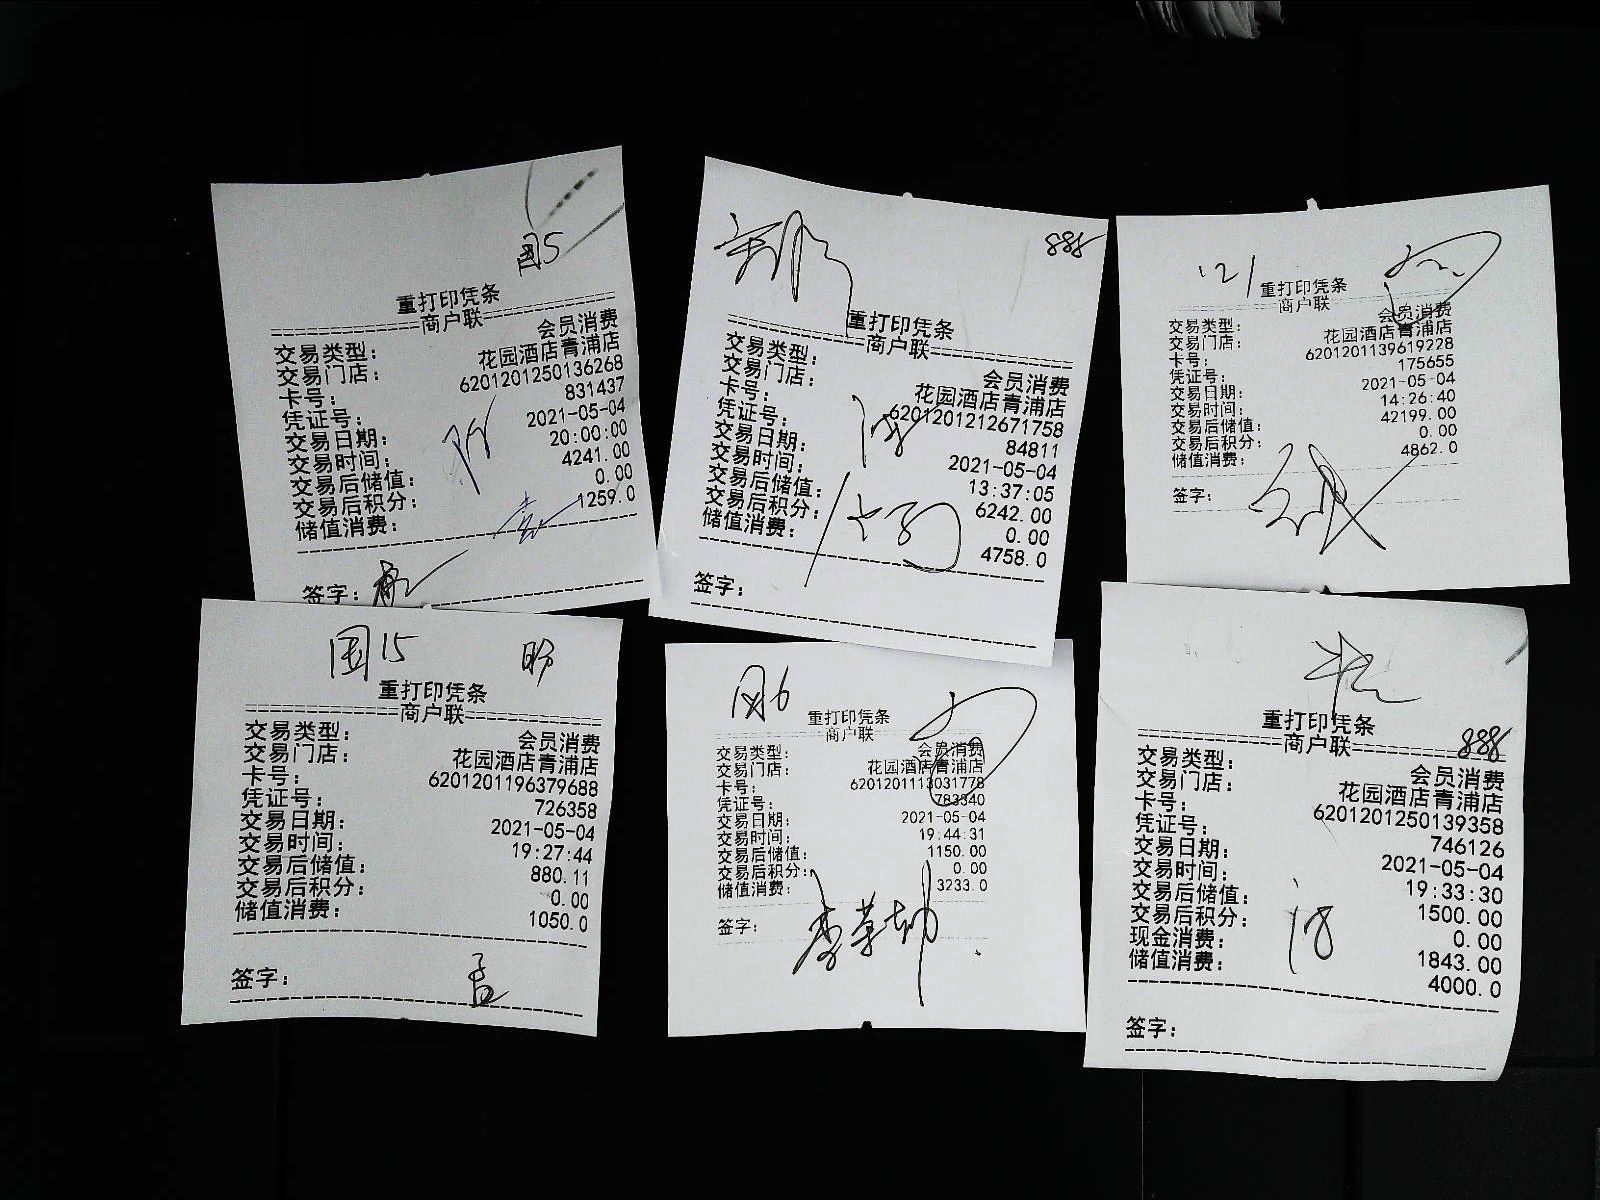 国5
重打印凭条
商户联
交易类型： 会员消费
交易门店： 花园酒店青浦店
卡号： 6201201250136268
凭证号： 831437
交易日期： 2021-05-04
交易时间： 20:00:00
交易后储值： 4241.00
交易后积分： 0.00
储值消费： 1259.0
签字：
888
重打印凭条
商户联
交易类型： 会员消费
交易门店： 花园酒店青浦店
卡号： 6201201212671758
凭证号： 84811
交易日期： 2021-05-04
交易时间： 13:37:05
交易后储值： 6242.00
交易后积分： 0.00
储值消费： 4758.0
签字：
121
重打印凭条
商户联
交易类型： 会员消费
交易门店： 花园酒店青浦店
卡号： 6201201139619228
凭证号： 175655
交易日期： 2021-05-04
交易时间： 14:26:40
交易后储值： 42199.00
交易后积分： 0.00
储值消费： 4862.0
签字：
国15
重打印凭条
商户联
交易类型： 会员消费
交易门店： 花园酒店青浦店
卡号： 6201201196379688
凭证号： 726358
交易日期： 2021-05-04
交易时间： 19:27:44
交易后储值： 880.11
交易后积分： 0.00
储值消费： 1050.0
签字： 孟
重打印凭条
商户联
交易类型： 会员消费
交易门店： 花园酒店青浦店
卡号： 6201201113031778
凭证号： 783340
交易日期： 2021-05-04
交易时间： 19:44:31
交易后储值： 1150.00
交易后积分： 0.00
储值消费： 3233.0
签字：
重打印凭条
商户联
888
交易类型： 会员消费
交易门店： 花园酒店青浦店
卡号： 6201201250139358
凭证号： 746126
交易日期： 2021-05-04
交易时间： 19:33:30
交易后储值： 1500.00
交易后积分： 0.00
现金消费： 1843.00
储值消费： 4000.0
签字：